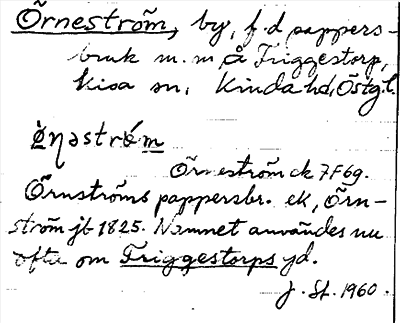 Örneström, by, f.d pappers-
bruk m.m å Triggestorp,
Kisa sn, Kinda hd, Östgl.
ǿ̀ṇəstrǿm
Örneström ck 7F6g.
Örnströms pappersbr. ek, Örn-
ström jb 1825. Namnet användes nu
ofta om Triggestorps gd.
J. St. 1960.